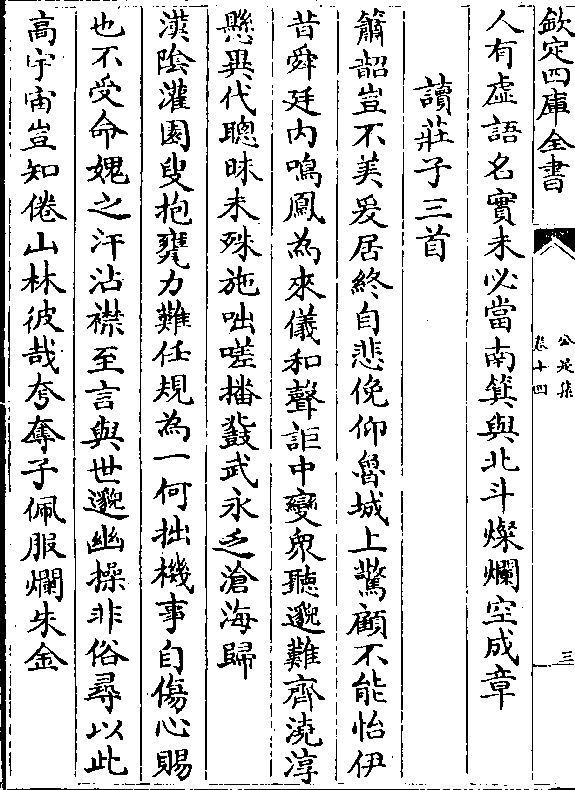 欽定四庫全書
公是集
卷十四
三
人有虛語名實未必當南箕與北斗燦爛空成章
讀莊子三首
簫韶豈不美爰居終自悲俛仰魯城上驚顧不能怡伊
昔舜廷内鳴鳳為來儀和聲詎中變衆聽邈難齊澆淳
懸異代聰昧未殊施咄嗟播鼗武永乏滄海歸
漢陰灌園叟抱甕力難任規為一何拙機事自傷心賜
也不受命媿之汗沾襟至言與世邈幽操非俗尋以此
高宇宙豈知倦山林彼哉夸奪子佩服爛朱金